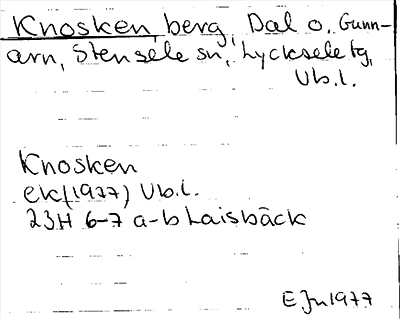 Knosken, berg, Dal o. Gunn-
arn, Stensele sn, Lycksele tg,
Vb.l.
Knosken
ek(1977) Vb.l.
23H 6-7 a-b Laisbäck
EJn 1977